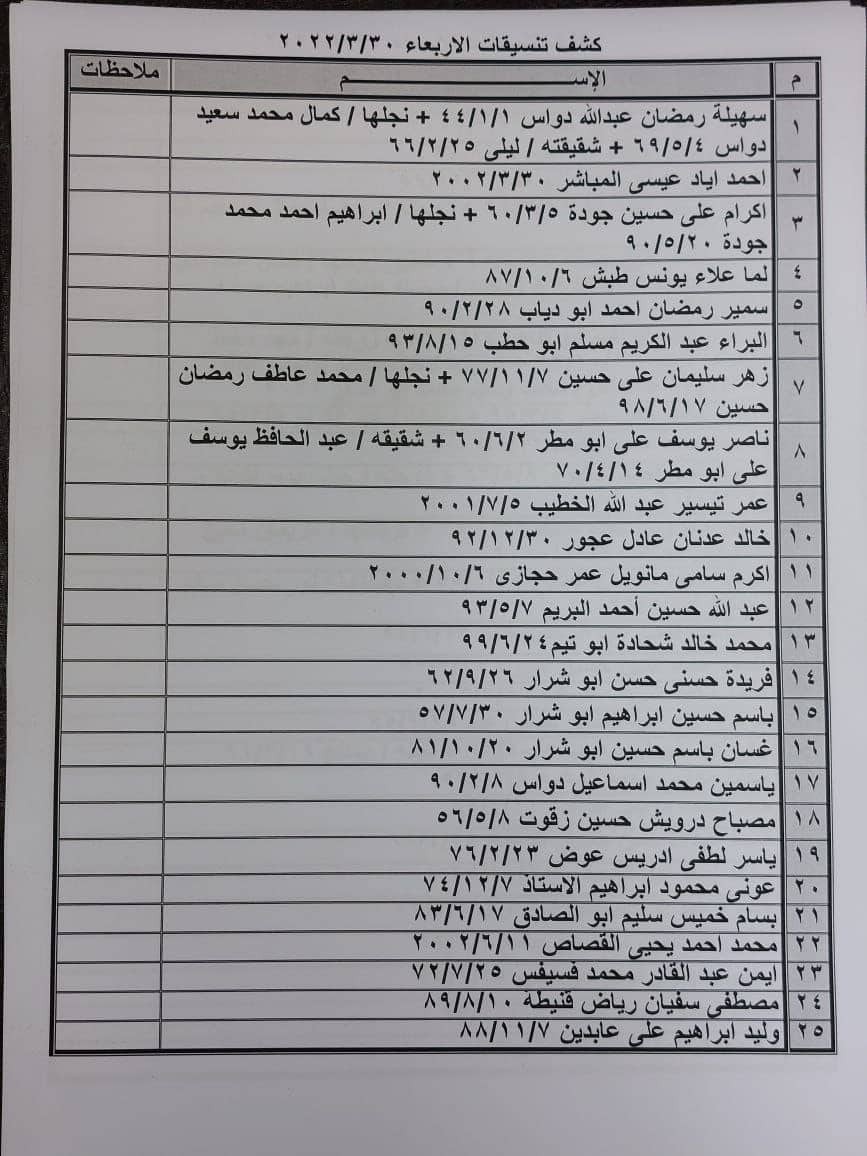 كشف تنسيقات الاربعاء ٢٠٢٢/٣/٣٠
م الإســــم ملاحظات
١ سهيلة رمضان عبدالله دواس ٤٤/١/١ + نجلها / كمال محمد سعيد
دواس ٦٩/٥/٤ + شقيقته / ليلى ٦٦/٢/٢٥
٢ احمد اياد عيسى المباشر ٢٠٠٢/٣/٣٠
٣ اكرام على حسين جودة ٦٠/٣/٥ + نجلها / ابراهيم احمد محمد
جودة ٩٠/٥/٢٠
٤ لما علاء يونس طبش ٨٧/١٠/٦
٥ سمير رمضان احمد ابو دياب ٩٠/٢/٢٨
٦ البراء عبد الكريم مسلم ابو حطب ٩٣/٨/١٥
٧ زهر سليمان على حسين ٧٧/١١/٧ + نجلها / محمد عاطف رمضان
حسين ٩٨/٦/١٧
٨ ناصر يوسف على ابو مطر ٦٠/٦/٢ + شقيقه / عبد الحافظ يوسف
على ابو مطر ٧٠/٤/١٤
٩ عمر تيسير عبد الله الخطيب ٢٠٠١/٧/٥
١٠ خالد عدنان عادل عجور ٩٢/١٢/٣٠
١١ اكرم سامى مانويل عمر حجازى ٢٠٠٠/١٠/٦
١٢ عبد الله حسين أحمد البريم ٩٣/٥/٧
١٣ محمد خالد شحادة ابو تيم ٩٩/٦/٢٤
١٤ فريدة حسنى حسن ابو شرار ٦٢/٩/٢٦
١٥ باسم حسين ابراهيم ابو شرار ٥٧/٧/٣٠
١٦ غسان باسم حسين ابو شرار ٨١/١٠/٢٠
١٧ ياسمين محمد اسماعيل دواس ٩٠/٢/٨
١٨ مصباح درويش حسين زقوت ٥٦/٥/٨
١٩ ياسر لطفى ادريس عوض ٧٦/٢/٢٣
٢٠ عونى محمود ابراهيم الاستاذ ٧٤/١٢/٧
٢١ بسام خميس سليم ابو الصادق ٨٣/٦/١٧
٢٢ محمد احمد يحيى القصاص ٢٠٠٢/٦/١١
٢٣ ايمن عبد القادر محمد فسيفس ٧٢/٧/٢٥
٢٤ مصطفى سفيان رياض قنيطة ٨٩/٨/١٠
٢٥ وليد ابراهيم على عابدين ٨٨/١١/٧